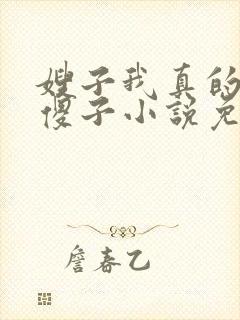 嫂子我真的
傻子小说免
詹春乙